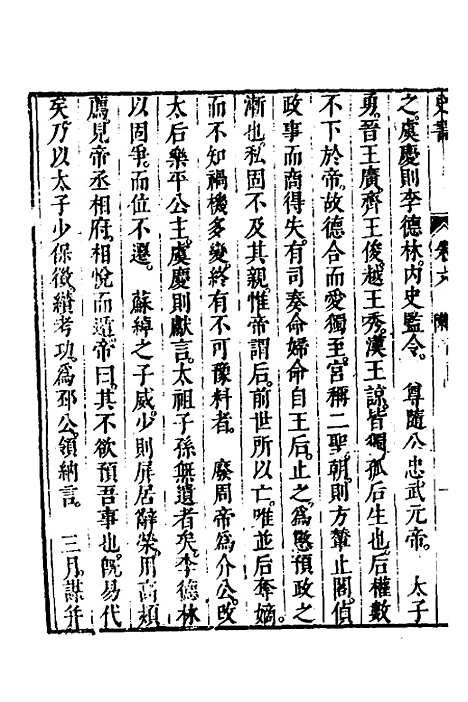 史書 卷六 隋
之虞慶則李德林内史監令。 尊隨公忠武元帝。 太子
勇晉王廣齊王俊越王秀漢王諒皆獨孤后生也后權數
不下於帝故德合而愛獨至宮稱二聖朝則方輦止閤偵
政事而商得失有司奏命婦命自王后止之為慇預政之
漸也私固不及其親惟帝謂后前世所以亡唯並后奪嫡
而不知禍機多變終有不可豫料者。 廢周帝為介公改
太后樂平公主虞慶則獻言太祖子孫無遺者矣李德林
以固爭而位不遷。 蘇綽之子威少則屏居辭榮用高熲
薦見帝丞相府相悅而遁帝曰其不欲預吾事也旣易代
矣乃以太子少保徵績考功為邳公領納言。 三月謀幷